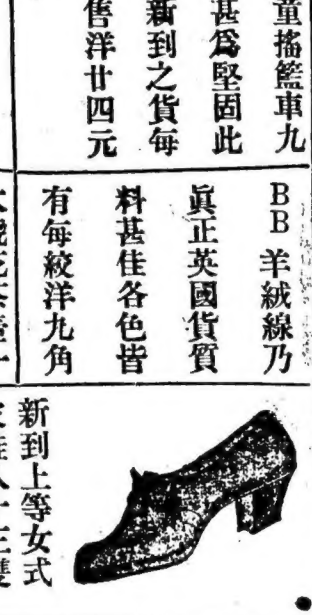 童搖籃車九
甚爲堅固此
新到之貨每
售洋廿四元
BB 羊絨線乃
眞正英國貨質
料甚佳各色皆
有每絞洋九角
新到上等女式